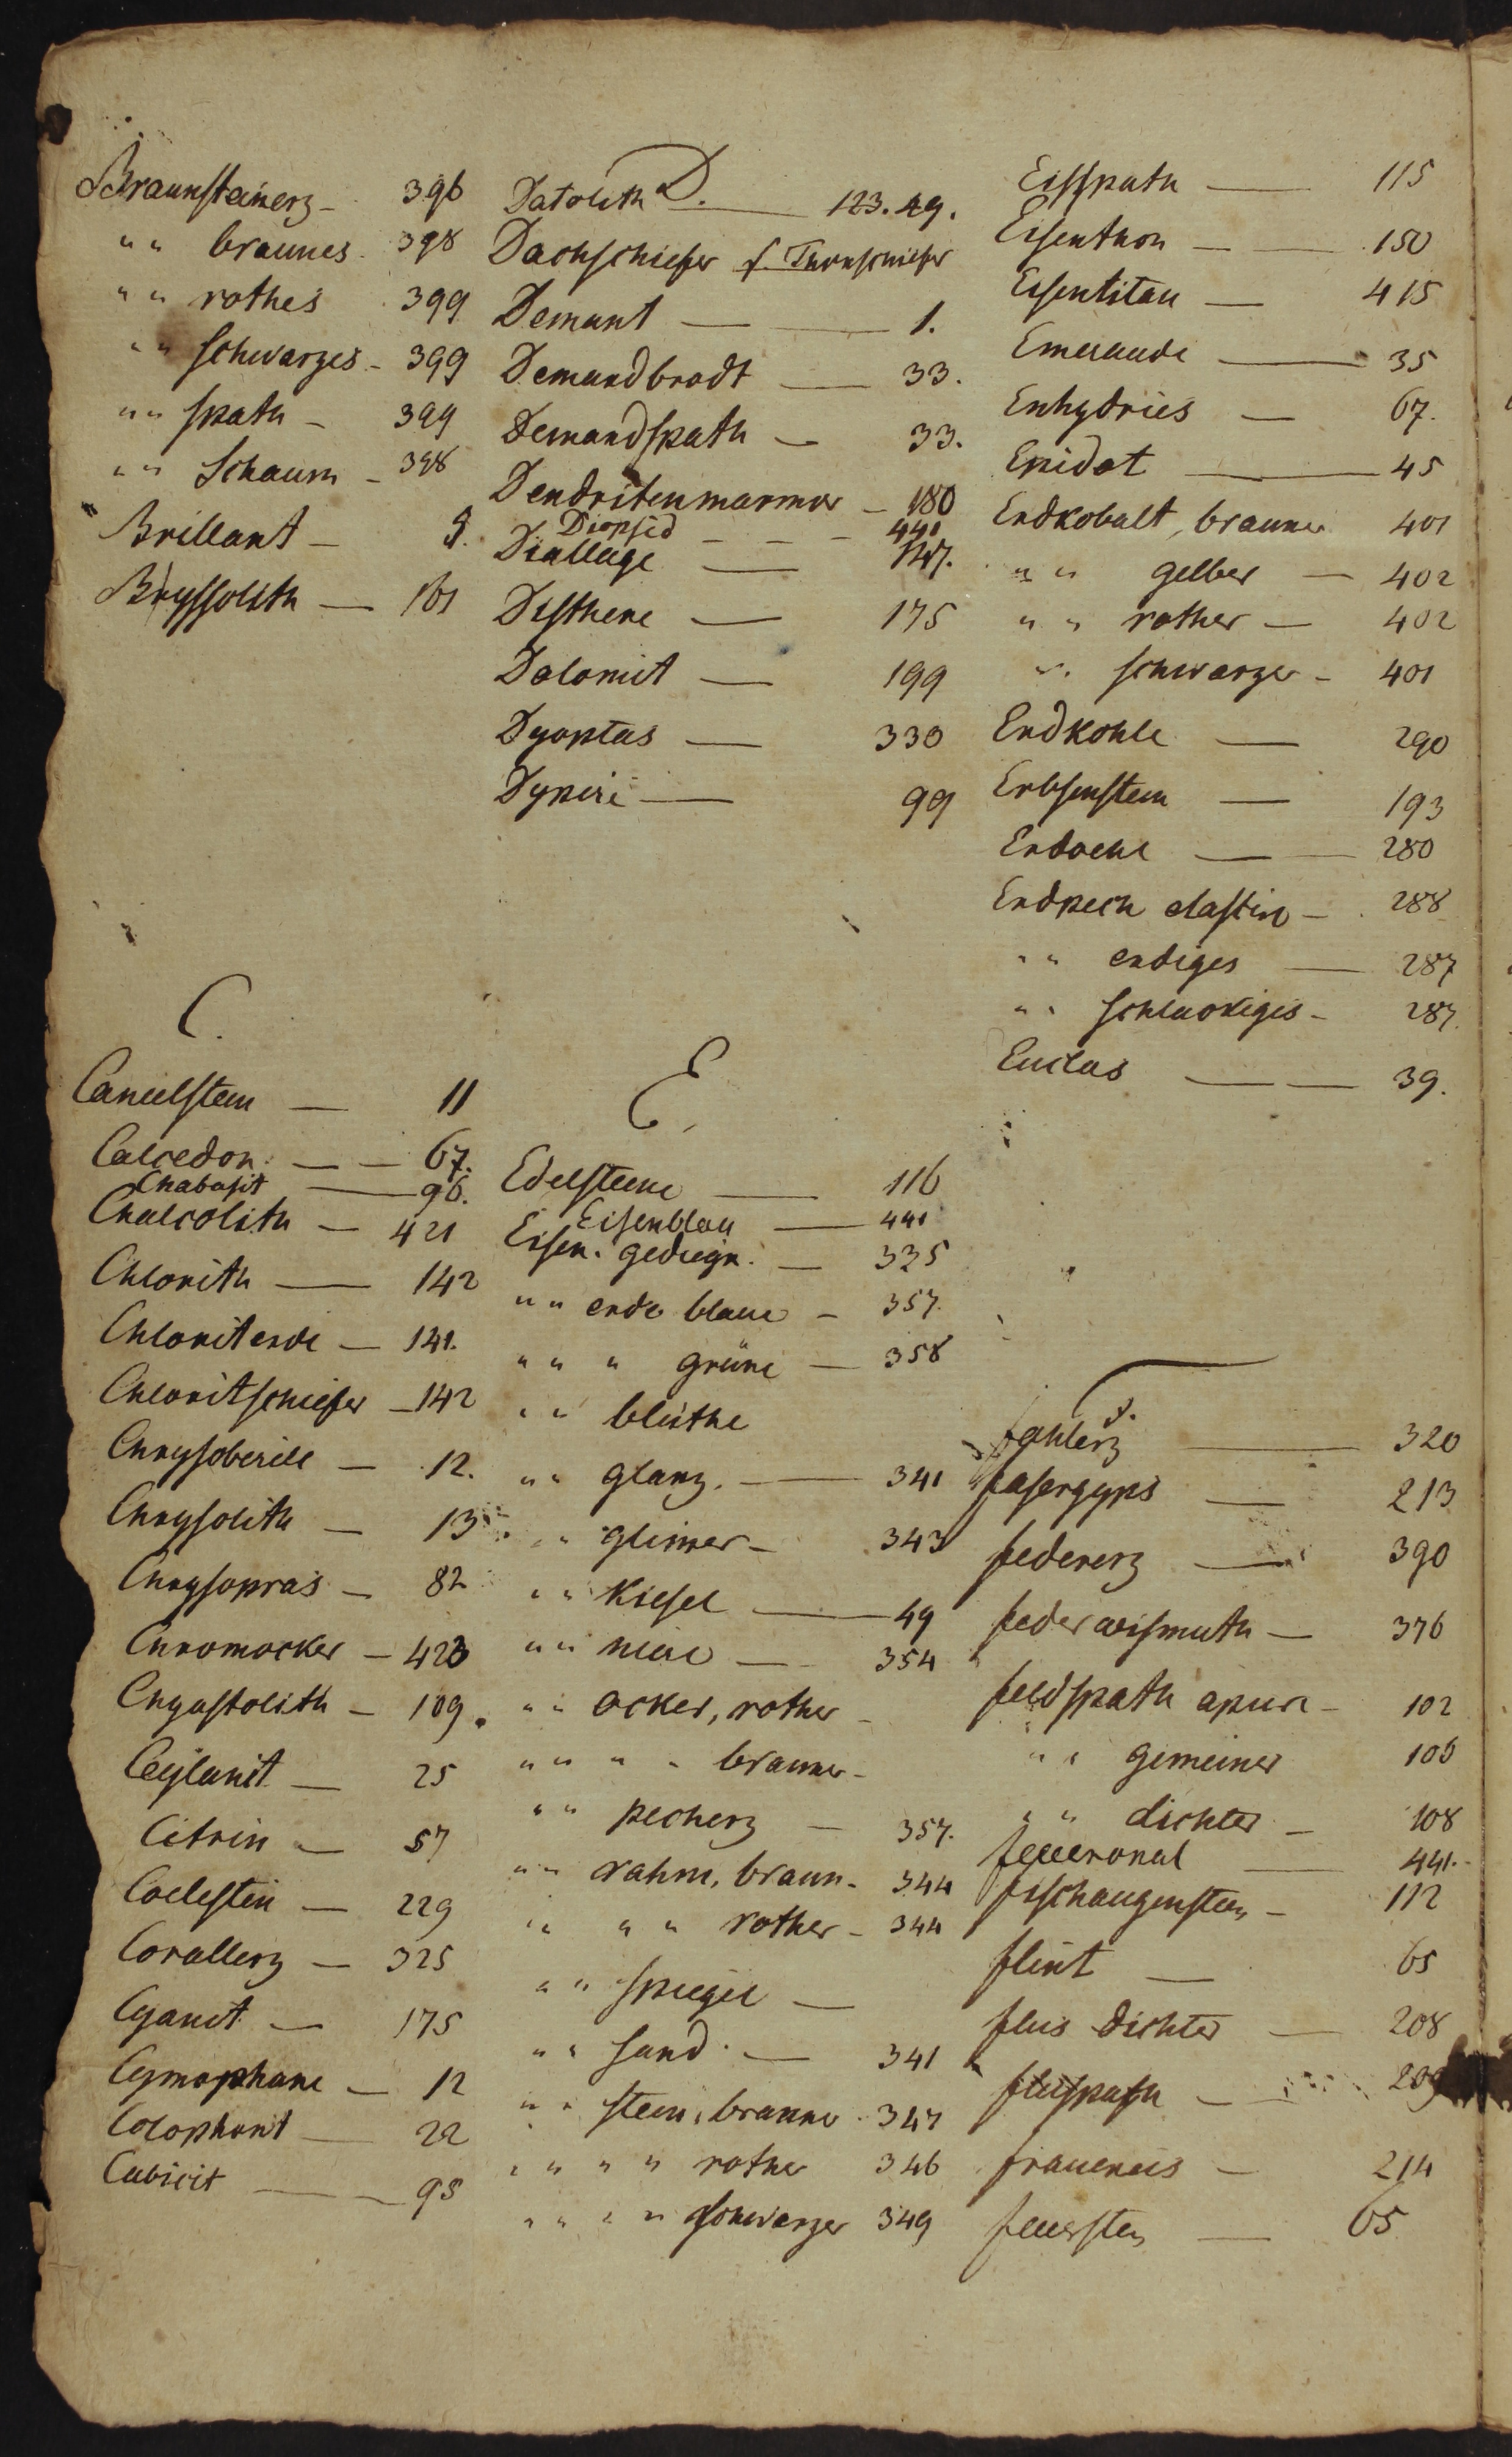 Braunsteinerz - 396
" " braunes - 398
" " rothes 399
" " schwarzes - 399
" " spath - 399
" " Schaum - 398
Brillant - 9.
Bryssolith — 161
C.
Caneelstein — 11
Calcedon — — 67.
Chabasit — 96.
Chalcolith — 421
Chlorith — 142
Chloriterde — 141.
Chloritschiefer — 142
Chrysoberill — 12.
Chrysolith — 13
Chrysopras — 82
Chromocker — 423
Chyastolith — 109.
Ceÿlanit — 25
Citrin — 57
Coelestin — 229
Corallerz — 325
Cyanit — 175
Cymophane — 12
Colophonit — 22
Cubicit — 95
D.
Datolith — 123. 49.
Dachschiefer s. Thonschiefer
Demant — 1.
Demandbrodt — 33.
Demandspath — 33.
Dendritenmarmor — 180
Diopsid - - - 441
Diallage — 147.
Disthene — 175
Dolomit — 199
Dyoptas — 330
Dypire — 99
E.
Edelsteine — 116
Eisenblau — 441
Eisen. gediegn. — 335
" " erde blaue — 357.
" " " grüne — 358
" " blüthe
" " glanz. — 341
" " glimer — 343
" " Kiesel — 49
" " niere — 354
" " ocker, rother —
" " " " brauner —
" " pecherz — 357.
" " rahm, braun - 344
" " " rother - 344
" " spiegel —
" " sand. — 341
" " stein, brauner - 347
" " " " rother 346
" " " " schwarzer 349
Eisspath — 115
Eisenthon — 150
Eisentitan — 415
Emeraude — 35
Enhydries — 67.
Epidot — 45
Erdkobalt, brauner 401
" " gelber — 402
" " rother — 402
" " schwarzer - 401
Erdkohle — 290
Erbsenstein — 193
— 280
Erdpech elastisc — 288
" " erdiges — 287
" " schlackiges - 287.
Euclas — 39.
F.
Fahlerz — 320
fasergyps — 213
federerz — 390
federwismuth — 376
feldspath apure - 102
" " gemeiner 106
" " dichter — 108
feueropal — 441.
fischaugenstein - 112
flint — 65
flus dichter — 208
fluspath — 209
fraueneis — 214
feuerstein — 65